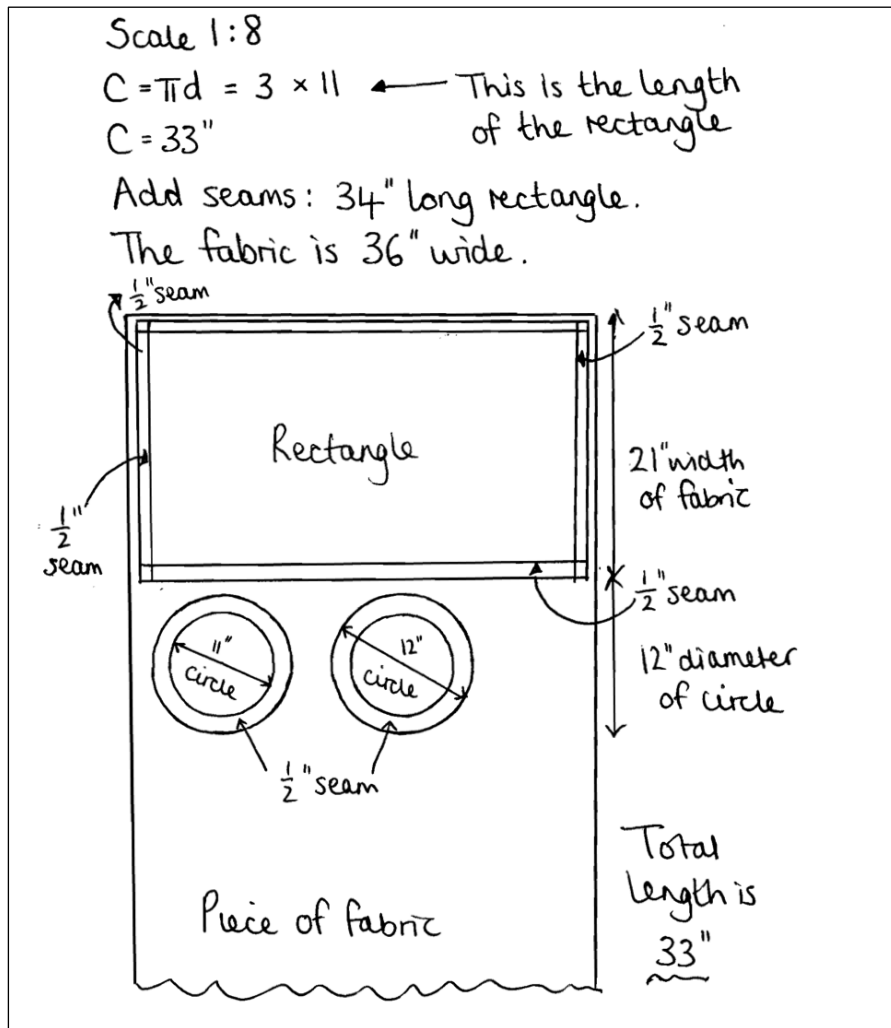 Scale 1:8
C = πd = 3 × 11 ← This is the length
of the rectangle
C = 33"
Add seams: 34" long rectangle.
The fabric is 36" wide.
1/2" seam
1/2" seam
Rectangle
21" width
of fabric
1/2"
seam
1/2" seam
11"
circle
12"
circle
12" diameter
of circle
1/2" seam
Total
length is
33"
Piece of fabric